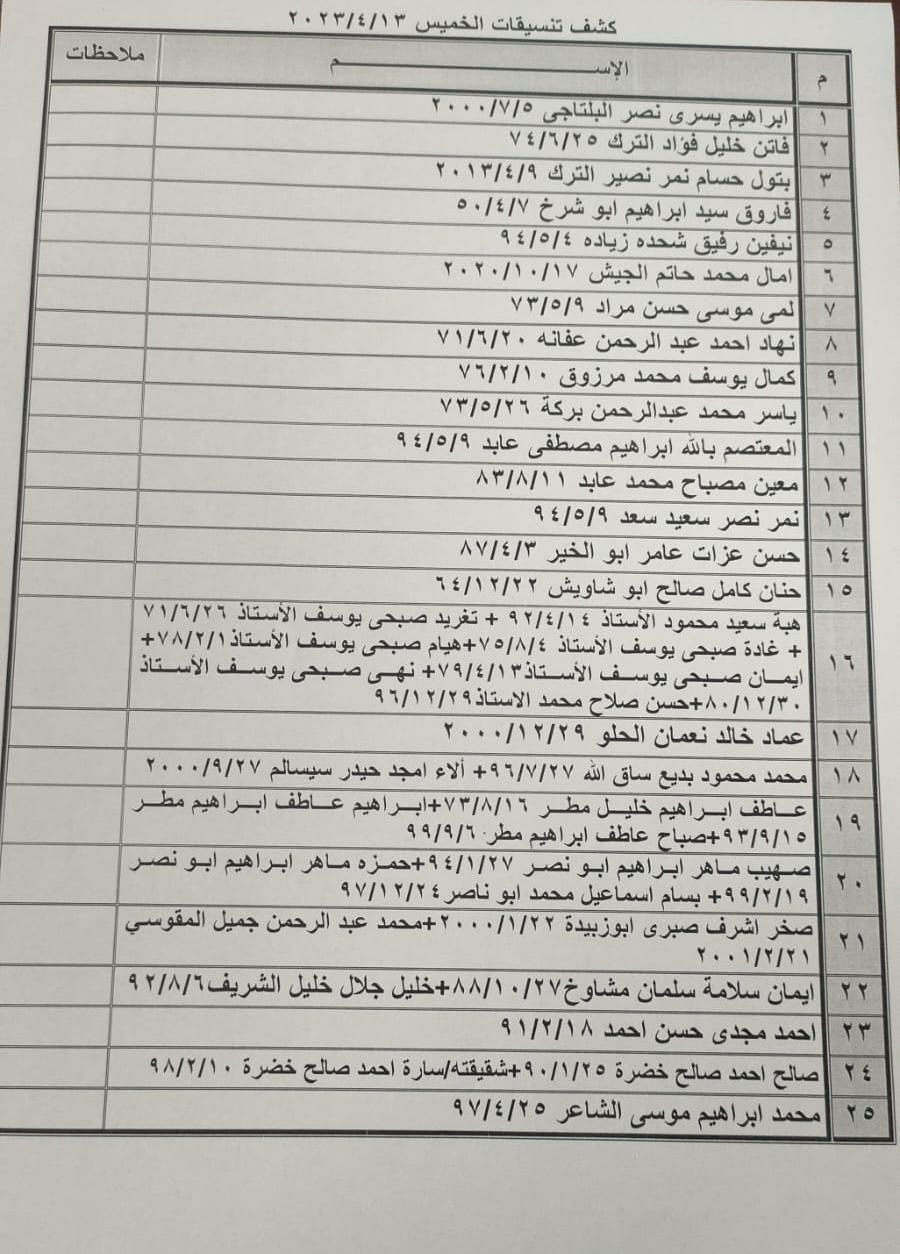 كشف تنسيقات الخميس ٢٠٢٣/٤/١٣
م الإســـــــــم ملاحظات
١ ابراهيم يسرى نصر البلتاجى ٢٠٠٠/٧/٥
٢ فاتن خليل فؤاد الترك ٧٤/٦/٢٥
٣ بتول حسام نمر نصير الترك ٢٠١٣/٤/٩
٤ فاروق سيد ابراهيم ابو شرخ ٥٠/٤/٧
٥ نيفين رفيق شحده زياده ٩٤/٥/٤
٦ امال محمد حاتم الجيش ٢٠٢٠/١٠/١٧
٧ لمى موسى حسن مراد ٧٣/٥/٩
٨ نهاد احمد عبد الرحمن عفانه ٧١/٦/٢٠
٩ كمال يوسف محمد مرزوق ٧٦/٢/١٠
١٠ ياسر محمد عبدالرحمن بركة ٧٣/٥/٢٦
١١ المعتصم بالله ابراهيم مصطفى عابد ٩٤/٥/٩
١٢ معين مصباح محمد عابد ٨٣/٨/١١
١٣ نمر نصر سعيد سعد ٩٤/٥/٩
١٤ حسن عزات عامر ابو الخير ٨٧/٤/٣
١٥ حنان كامل صالح ابو شاويش ٦٤/١٢/٢٢
١٦ هبة سعيد محمود الأستاذ ٩٢/٤/١٤ + تغريد صبحى يوسف الأستاذ ٧١/٦/٢٦
+ غادة صبحى يوسف الأستاذ ٧٥/٨/٤+هيام صبحى يوسف الأستاذ٧٨/٢/١+
ايمان صبحى يوسف الأستاذ٧٩/٤/١٣+ نهى صبحى يوسف الأستاذ
٨٠/١٢/٣٠+حسن صلاح محمد الاستاذ٩٦/١٢/٢٩
١٧ عماد خالد نعمان الحلو ٢٠٠٠/١٢/٢٩
١٨ محمد محمود بديع ساق الله ٩٦/٧/٢٧+ ألاء امجد حيدر سيسالم ٢٠٠٠/٩/٢٧
١٩ عاطف ابراهيم خليل مطر ٧٣/٨/١٦+ابراهيم عاطف ابراهيم مطر
٩٣/٩/١٥+صباح عاطف ابراهيم مطر ٩٩/٩/٦
٢٠ صهيب ماهر ابراهيم ابو نصر ٩٤/١/٢٧+حمزه ماهر ابراهيم ابو نصر
٩٩/٢/١٩+ بسام اسماعيل محمد ابو ناصر٩٧/١٢/٢٤
٢١ صخر اشرف صبرى ابوزبيدة ٢٠٠٠/١/٢٢+محمد عبد الرحمن جميل المقوسي
٢٠٠١/٢/٢١
٢٢ ايمان سلامة سلمان مشاوخ٨٨/١٠/٢٧+خليل جلال خليل الشريف٩٢/٨/٦
٢٣ احمد مجدى حسن احمد ٩١/٢/١٨
٢٤ صالح احمد صالح خضرة ٩٠/١/٢٥+شقيقته/سارة احمد صالح خضرة ٩٨/٢/١٠
٢٥ محمد ابراهيم موسى الشاعر ٩٧/٤/٢٥